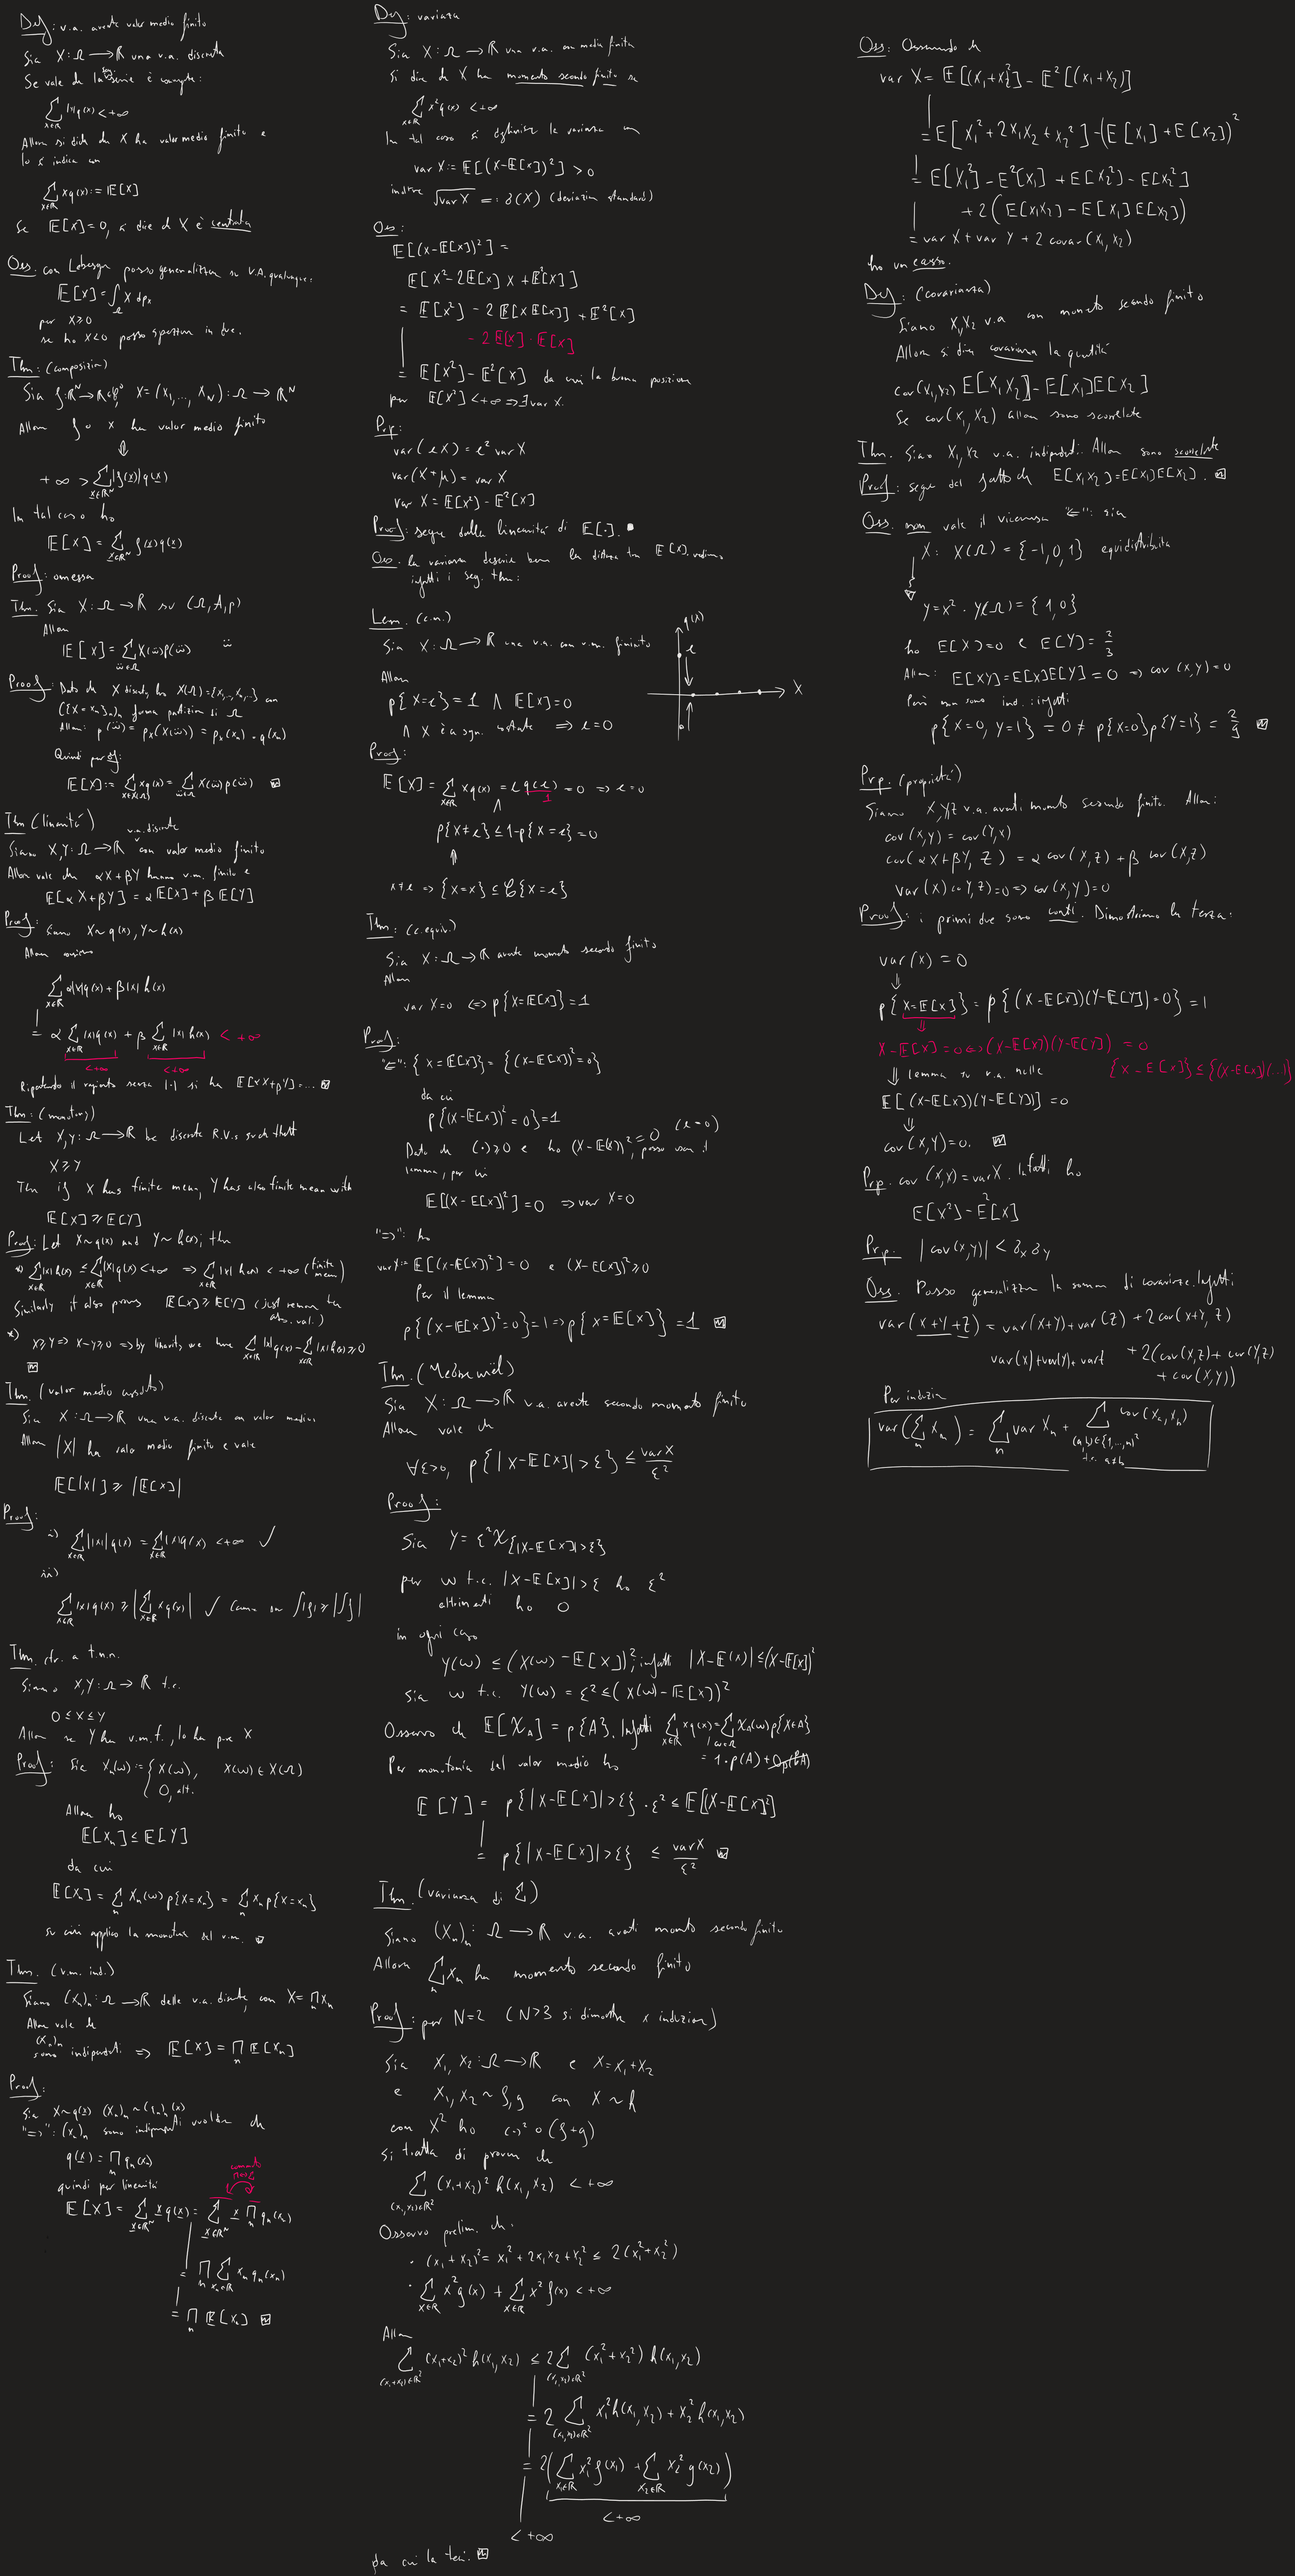 Def: v.a. avente valor medio finito
Sia X: Ω → ℝ una v.a. discreta
Se vale che la serie è conv.te:
∑_{x∈ℝ} |x|q(x) < +∞
Allora si dice che X ha valor medio finito e
lo si indica con
∑_{x∈ℝ} xq(x) := 𝔼[X]
Se 𝔼[X]=0, si dice che X è centrata
Oss. con Lebesgue posso generalizzare su V.A. qualunque:
𝔼[X] = ∫ X dp_X
per X≥0
se ho X<0 posso spezzare in due.
Thm: (composizione)
Sia f: ℝ^N → ℝ, X=(X₁,…,X_N): Ω → ℝ^N
Allora f∘X ha valor medio finito
⇕
+∞ > ∑_{x∈ℝ^N} |f(x)|q(x)
In tal caso ho
𝔼[X] = ∑_{x∈ℝ^N} f(x)q(x)
Proof: omessa
Thm. Sia X: Ω → ℝ su (Ω,A,p)
Allora
𝔼[X] = ∑_{ω∈Ω} X(ω)p(ω)
Proof: Dato che X discreta, ho X(Ω)={x₁,…,xₙ,…} con
({X=xₙ})ₙ forma partizione di Ω
Allora: p(ω) = p_X(X(ω)) = p_X(xₙ) = q(xₙ)
Quindi per def:
𝔼[X] := ∑_{x∈X(Ω)} xq(x) = ∑_{ω∈Ω} X(ω)p(ω)
Thm (linearità)
Siano X,Y: Ω → ℝ v.a. discrete con valor medio finito
Allora vale che αX+βY hanno v.m. finito e
𝔼[αX+βY] = α𝔼[X] + β𝔼[Y]
Proof: Siano X~q(x), Y~h(x)
Allora
∑_{x∈ℝ} α|x|q(x) + β|x|h(x)
= α ∑_{x∈ℝ} |x|q(x) + β ∑_{x∈ℝ} |x|h(x) < +∞
<+∞ <+∞
Ripetendo il ragionamento senza |·| si ha 𝔼[αX+βY] = …
Thm: (monotony)
Let X,Y: Ω → ℝ be discrete R.V.s such that
X ≥ Y
Then if X has finite mean, Y has also finite mean with
𝔼[X] ≥ 𝔼[Y]
Proof: Let X~q(x) and Y~h(x); then
*) ∑_{x∈ℝ} |x|h(x) ≤ ∑_{x∈ℝ} |x|q(x) < +∞ ⇒ ∑_{x∈ℝ} |x|h(x) < +∞ (finite mean)
Similarly it also proves 𝔼[X] ≥ 𝔼[Y] (just remove the abs. val.)
*) X≥Y ⇒ X-Y≥0 ⇒ by linearity we have ∑_{x∈ℝ} |x|q(x) - ∑_{x∈ℝ} |x|h(x) ≥ 0
Thm. (valor medio assoluto)
Sia X: Ω → ℝ una v.a. discreta con valor medio
Allora |X| ha valor medio finito e vale
𝔼[|X|] ≥ |𝔼[X]|
Proof:
i) ∑_{x∈ℝ} ||x||q(x) = ∑_{x∈ℝ} |x|q(x) < +∞ ✓
ii)
∑_{x∈ℝ} |x|q(x) ≥ |∑_{x∈ℝ} xq(x)| ✓ (come su ∫|f| ≥ |∫f|
Thm. ctr. a t.n.n.
Siano X,Y: Ω → ℝ t.c.
0≤X≤Y
Allora se Y ha v.m.f., lo ha pure X
Proof: Sia Xₙ(ω) := { X(ω), X(ω)∈X(Ω)
0, alt.
Allora ho
𝔼[Xₙ] ≤ 𝔼[Y]
da cui
𝔼[Xₙ] = ∑ₙ Xₙ(ω)p{X=xₙ} = ∑ₙ xₙp{X=xₙ}
su cui applico la monotonia del v.m.
Thm. (v.m. ind.)
Siano (Xₙ)ₙ: Ω → ℝ delle v.a. discrete, con X=∏ₙ Xₙ
Allora vale che
(Xₙ)ₙ sono indipendenti ⇒ 𝔼[X] = ∏ₙ 𝔼[Xₙ]
Proof:
Sia X~q(x) (Xₙ)ₙ~(qₙ)ₙ(x)
"⇒": (Xₙ)ₙ sono indipendenti vuol dire che
q(x) = ∏ₙ qₙ(xₙ)
quindi per linearità
𝔼[X] = ∑_{x∈ℝ^N} x q(x) = ∑_{x∈ℝ^N} x ∏ₙ qₙ(xₙ)
= ∏ₙ ∑_{xₙ∈ℝ} xₙ qₙ(xₙ)
= ∏ₙ 𝔼[Xₙ]
Def: varianza
Sia X: Ω → ℝ una v.a. con media finita
Si dice che X ha momento secondo finito se
∑_{x∈ℝ} x²q(x) < +∞
In tal caso si definisce la varianza con
var X := 𝔼[(X-𝔼[X])²] > 0
inoltre √var X =: δ(X) (deviazion standard)
Oss:
𝔼[(X-𝔼[X])²] =
𝔼[X²-2𝔼[X]X+𝔼²[X]]
= 𝔼[X²] - 2𝔼[X𝔼[X]] + 𝔼²[X]
-2𝔼[X]·𝔼[X]
= 𝔼[X²] - 𝔼²[X] da cui la buona posizione
per 𝔼[X²] < +∞ ⇒ ∃ var X.
Prp:
var(eX) = e² var X
var(X+μ) = var X
var X = 𝔼[X²] - 𝔼²[X]
Proof: segue dalla linearità di 𝔼[·].
Oss. la varianza descrive bene la distanza tra 𝔼[X]. vediamo
infatti i seg. thm:
Lem. (c.n.)
Sia X: Ω → ℝ una v.a. con v.m. finito
Allora
p{X=e}=1 ∧ 𝔼[X]=0
∧ X è a sgn. costante ⇒ e=0
q(x)
e
X
Proof:
𝔼[X] = ∑_{x∈ℝ} xq(x) = e q(e) = 0 ⇒ e=0
1
p{X≠e} ≤ 1-p{X=e} = 0
x≠e ⇒ {X=x} ⊆ C{X=e}
Thm: (c. equiv.)
Sia X: Ω → ℝ avente momento secondo finito
Allora
var X=0 ⇔ p{X=𝔼[X]}=1
Proof:
"⇐": {X=𝔼[X]} = {(X-𝔼[X])²=0}
da cui
p{(X-𝔼[X])²=0}=1
Dato che (·)≥0 e ho (X-𝔼[X])²=0 (e=0), posso usare il
lemma, per cui
𝔼[(X-𝔼[X])²]=0 ⇒ var X=0
"⇒": ho
var X := 𝔼[(X-𝔼[X])²]=0 e (X-𝔼[X])²≥0
Per il lemma
p{(X-𝔼[X])²=0}=1 ⇒ p{X=𝔼[X]}=1
Thm. ()
Sia X: Ω → ℝ v.a. avente secondo momento finito
Allora vale che
∀ε>0, p{|X-𝔼[X]|>ε} ≤ varX/ε²
Proof:
Sia Y = ε²χ_{{|X-𝔼[X]|>ε}}
per ω t.c. |X-𝔼[X]|>ε ho ε²
altrimenti ho 0
in ogni caso
Y(ω) ≤ (X(ω)-𝔼[X])²; infatti |X-𝔼(X)| ≤ (X-𝔼[X])²
Sia ω t.c. Y(ω) = ε² ≤ (X(ω)-𝔼[X])²
Osservo che 𝔼[χ_A] = p{A}. Infatti ∑_{x∈ℝ} xq(x) = ∑_{ω∈Ω} χ_A(ω)p{X∈A}
= 1·p(A) + 0p(CA)
Per monotonia del valor medio ho
𝔼[Y] = p{|X-𝔼[X]|>ε}·ε² ≤ 𝔼[(X-𝔼[X])²]
= p{|X-𝔼[X]|>ε} ≤ varX/ε²
Thm. (varianza di ∑)
Siano (Xₙ)ₙ: Ω → ℝ v.a. aventi momento secondo finito
Allora ∑ₙ Xₙ ha momento secondo finito
Proof: per N=2 (N>3 si dimostra x induzione)
Sia X₁, X₂: Ω → ℝ e X=X₁+X₂
e X₁, X₂ ~ f,g con X~h
con X² ho (·)²∘(f+g)
Si tratta di provare che
∑_{(x₁,x₂)∈ℝ²} (x₁+x₂)² h(x₁,x₂) < +∞
Osservo prelim. che:
· (x₁+x₂)² = x₁²+2x₁x₂+x₂² ≤ 2(x₁²+x₂²)
· ∑_{x∈ℝ} x²g(x) + ∑_{x∈ℝ} x²f(x) < +∞
Allora
∑_{(x₁+x₂)∈ℝ²} (x₁+x₂)² h(x₁,x₂) ≤ 2∑_{(x₁,x₂)∈ℝ²} (x₁²+x₂²) h(x₁,x₂)
= 2 ∑_{(x₁,x₂)∈ℝ²} x₁²h(x₁,x₂) + x₂²h(x₁,x₂)
= 2(∑_{x₁∈ℝ} x₁²f(x₁) + ∑_{x₂∈ℝ} x₂²g(x₂))
<+∞
<+∞
da cui la tesi.
Oss: Osservando che
var X = 𝔼[(X₁+X₂)²] - 𝔼²[(X₁+X₂)]
= 𝔼[X₁²+2X₁X₂+X₂²] - (𝔼[X₁]+𝔼[X₂])²
= 𝔼[X₁²] - 𝔼²[X₁] + 𝔼[X₂²] - 𝔼[X₂²]
+ 2(𝔼[X₁X₂] - 𝔼[X₁]𝔼[X₂])
= var X + var Y + 2 covar(X₁,X₂)
ho un casso.
Def: (covarianza)
Siano X₁,X₂ v.a. con momento secondo finito
Allora si dice covarianza la quantità
cov(X₁,X₂) 𝔼[X₁X₂] - 𝔼[X₁]𝔼[X₂]
Se cov(X₁,X₂) allora sono scorrelate
Thm. Siano X₁,X₂ v.a. indipendenti. Allora sono scorrelate
Proof: segue dal fatto che 𝔼[X₁X₂]=𝔼[X₁]𝔼[X₂].
Oss. non vale il viceversa "⇐": sia
X: X(Ω) = {-1,0,1} equidistribuita
Y=X². Y(Ω)={1,0}
ho 𝔼[X]=0 e 𝔼[Y]=2/3
Allora: 𝔼[XY]=𝔼[X]𝔼[Y]=0 ⇒ cov(X,Y)=0
Però non sono ind.: infatti
p{X=0, Y=1}=0≠p{X=0}p{Y=1}=2/9
Prp. (proprietà)
Siano X,Y,Z v.a. aventi momento secondo finito. Allora:
cov(X,Y) = cov(Y,X)
cov(αX+βY, Z) = α cov(X,Z) + β cov(X,Z)
var(X) cov(Y,Z)=0 ⇒ cov(X,Y)=0
Proof: i primi due sono conti. Dimostriamo la terza:
var(X) = 0
⇓
p{X=𝔼[X]} = p{(X-𝔼[X])(Y-𝔼[Y])=0} = 1
X-𝔼[X]=0 ⇔ (X-𝔼[X])(Y-𝔼[Y]) = 0
{X-𝔼[X]} ⊆ {(X-𝔼[X])(…)}
⇓ lemma su v.a. nulle
𝔼[(X-𝔼[X])(Y-𝔼[Y])] = 0
⇓
cov(X,Y)=0.
Prp. cov(X,X)=varX. Infatti ho
𝔼[X²] - 𝔼²[X]
Prp. |cov(X,Y)| < δ_X δ_Y
Oss. Posso generalizzare la somma di covarianze. Infatti
var(X+Y+Z) = var(X+Y)+var(Z) + 2cov(X+Y, Z)
var(X)+var(Y)+var Z + 2(cov(X,Z) + cov(Y,Z)
+ cov(X,Y))
Per induzion
var(∑ₙ Xₙ) = ∑ₙ var Xₙ + ∑_{(a,b)∈{1,…,n}² t.c. a≠b} cov(Xₐ,X_b)